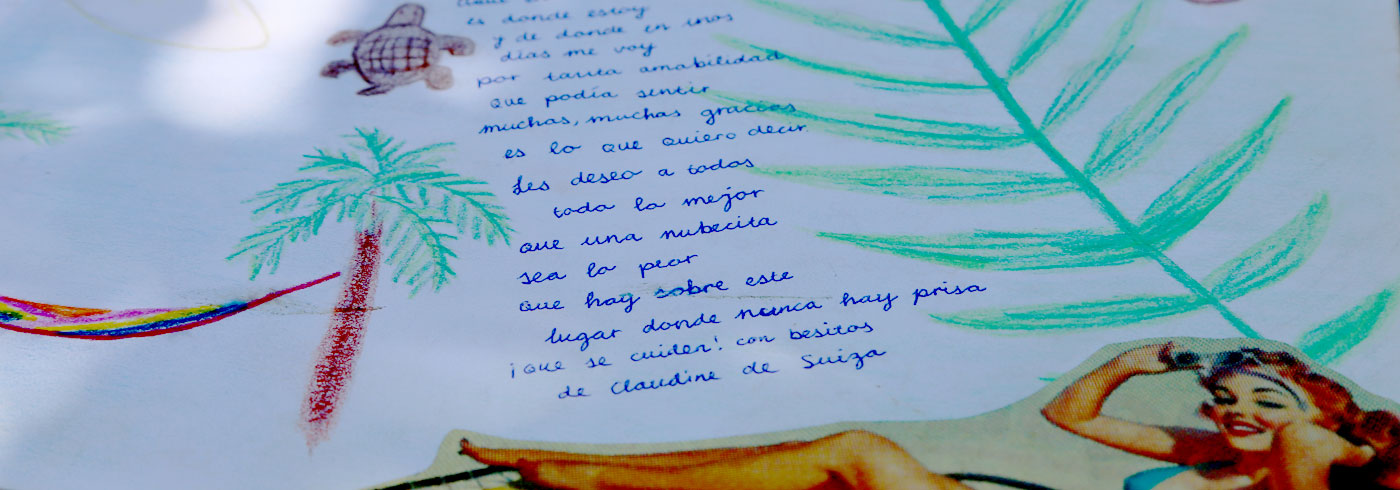 es donde estoy
y de donde en unos
días me voy
por tanta amabilidad
que podía sentir
muchas, muchas gracias
es lo que quiero decir.
Les deseo a todos
todo lo mejor
que una nubecita
sea lo peor
que hay sobre este
lugar donde nunca hay prisa
¡que se cuiden! con besitos
de Claudine de Suiza